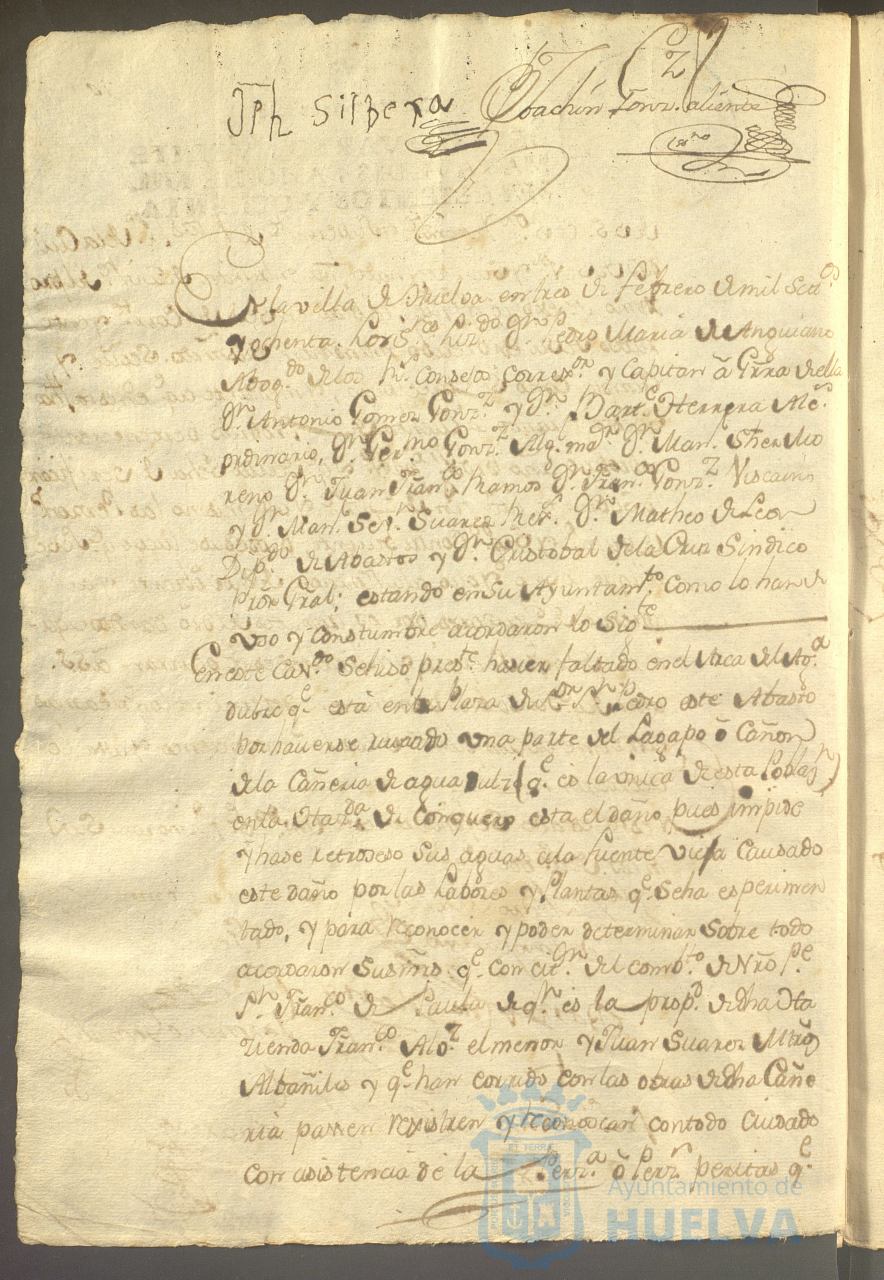 Jph Silbera Joachin Gonz. aliente
En la villa de Huelva en tres de Febrero de mil Setos
y ochenta. los Stes Liz.do Dn Pedro Maria de Anguiano
Abog.do de los Rs. Consejos Correx.or y Capitan â Grra de ella
Dn Antonio Gomez Gonz.z y Dn Bart.e Herrera Ales
ordinario, Dn Ger.mo Gonz.z Alg. mor Dn Man. Mo
reno Dn Juan Fran.co Ramos Dn Fran.co Gonz.z Viscaino
y Dn Man. Suarez Rexs. Dn Matheo de Leon
Dip.do de Abastos y Dn Cristobal de la Cruz Sindico
Pror Gral; estando en su Ayuntam.to como lo han de
uso y constumbre acordaron lo sigte
En este Cav.do se hiso preste haver faltado en el Arca del Ag.a
dulce qe está en la Plaza de Sor Sn Pedro este Abasto
por haverse una parte del ô Cañon
de la Cañeria de agua dulze (qe es la unica de esta Poblazn)
en la Hta de Conquero esta el daño pues impide
y hase retroseso sus aguas a la fuente Vieja Causado
este daño por las Labores y Plantas qe se ha esperimen
tado, y para reconocer y poder determinar sobre todo
acordaron sus mrs. qe con cit.on del comb.to de Nro Pe
Sn Fran.co de Paula de qn es la prop.d de dha Hta
Fran.co Alo.z el menor y Juan Suarez Mtros
Albañiles y qe han corrido con las obras de dha Cañe
ria passen rexistren y reconoscan con todo cuidado
con asistencia de la Perz.a ô Perz.s peritas qe
Ayuntamiento de
HUELVA